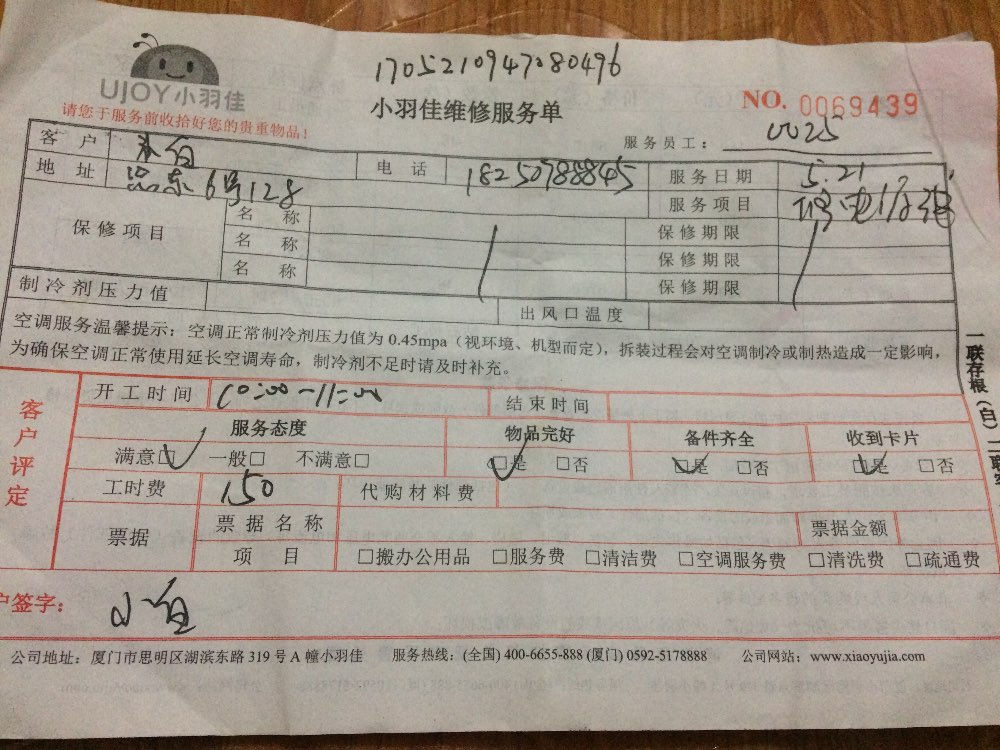 1705210947080496
UJOY小羽佳
小羽佳维修服务单
NO. 0069439
请您于服务前收拾好您的贵重物品！
服务员工： 0025
客户 电话 18250788845 服务日期 5.21
地址 东6号128 服务项目
保修项目 名称 保修期限
名称 保修期限
名称 保修期限
制冷剂压力值 出风口温度
空调服务温馨提示：空调正常制冷剂压力值为 0.45mpa（视环境、机型而定），拆装过程会对空调制冷或制热造成一定影响，
为确保空调正常使用延长空调寿命，制冷剂不足时请及时补充。
客户评定
开工时间 10:00-11:00 结束时间
服务态度 物品完好 备件齐全 收到卡片
满意□ 一般□ 不满意□ □是 □否 □是 □否 □是 □否
工时费 150 代购材料费
票据 票据名称 票据金额
项目 □搬办公用品 □服务费 □清洁费 □空调服务费 □清洗费 □疏通费
户签字：
公司地址：厦门市思明区湖滨东路 319 号 A 幢小羽佳 服务热线：(全国) 400-6655-888 (厦门) 0592-5178888 公司网站：www.xiaoyujia.com
一联存根（白）二联